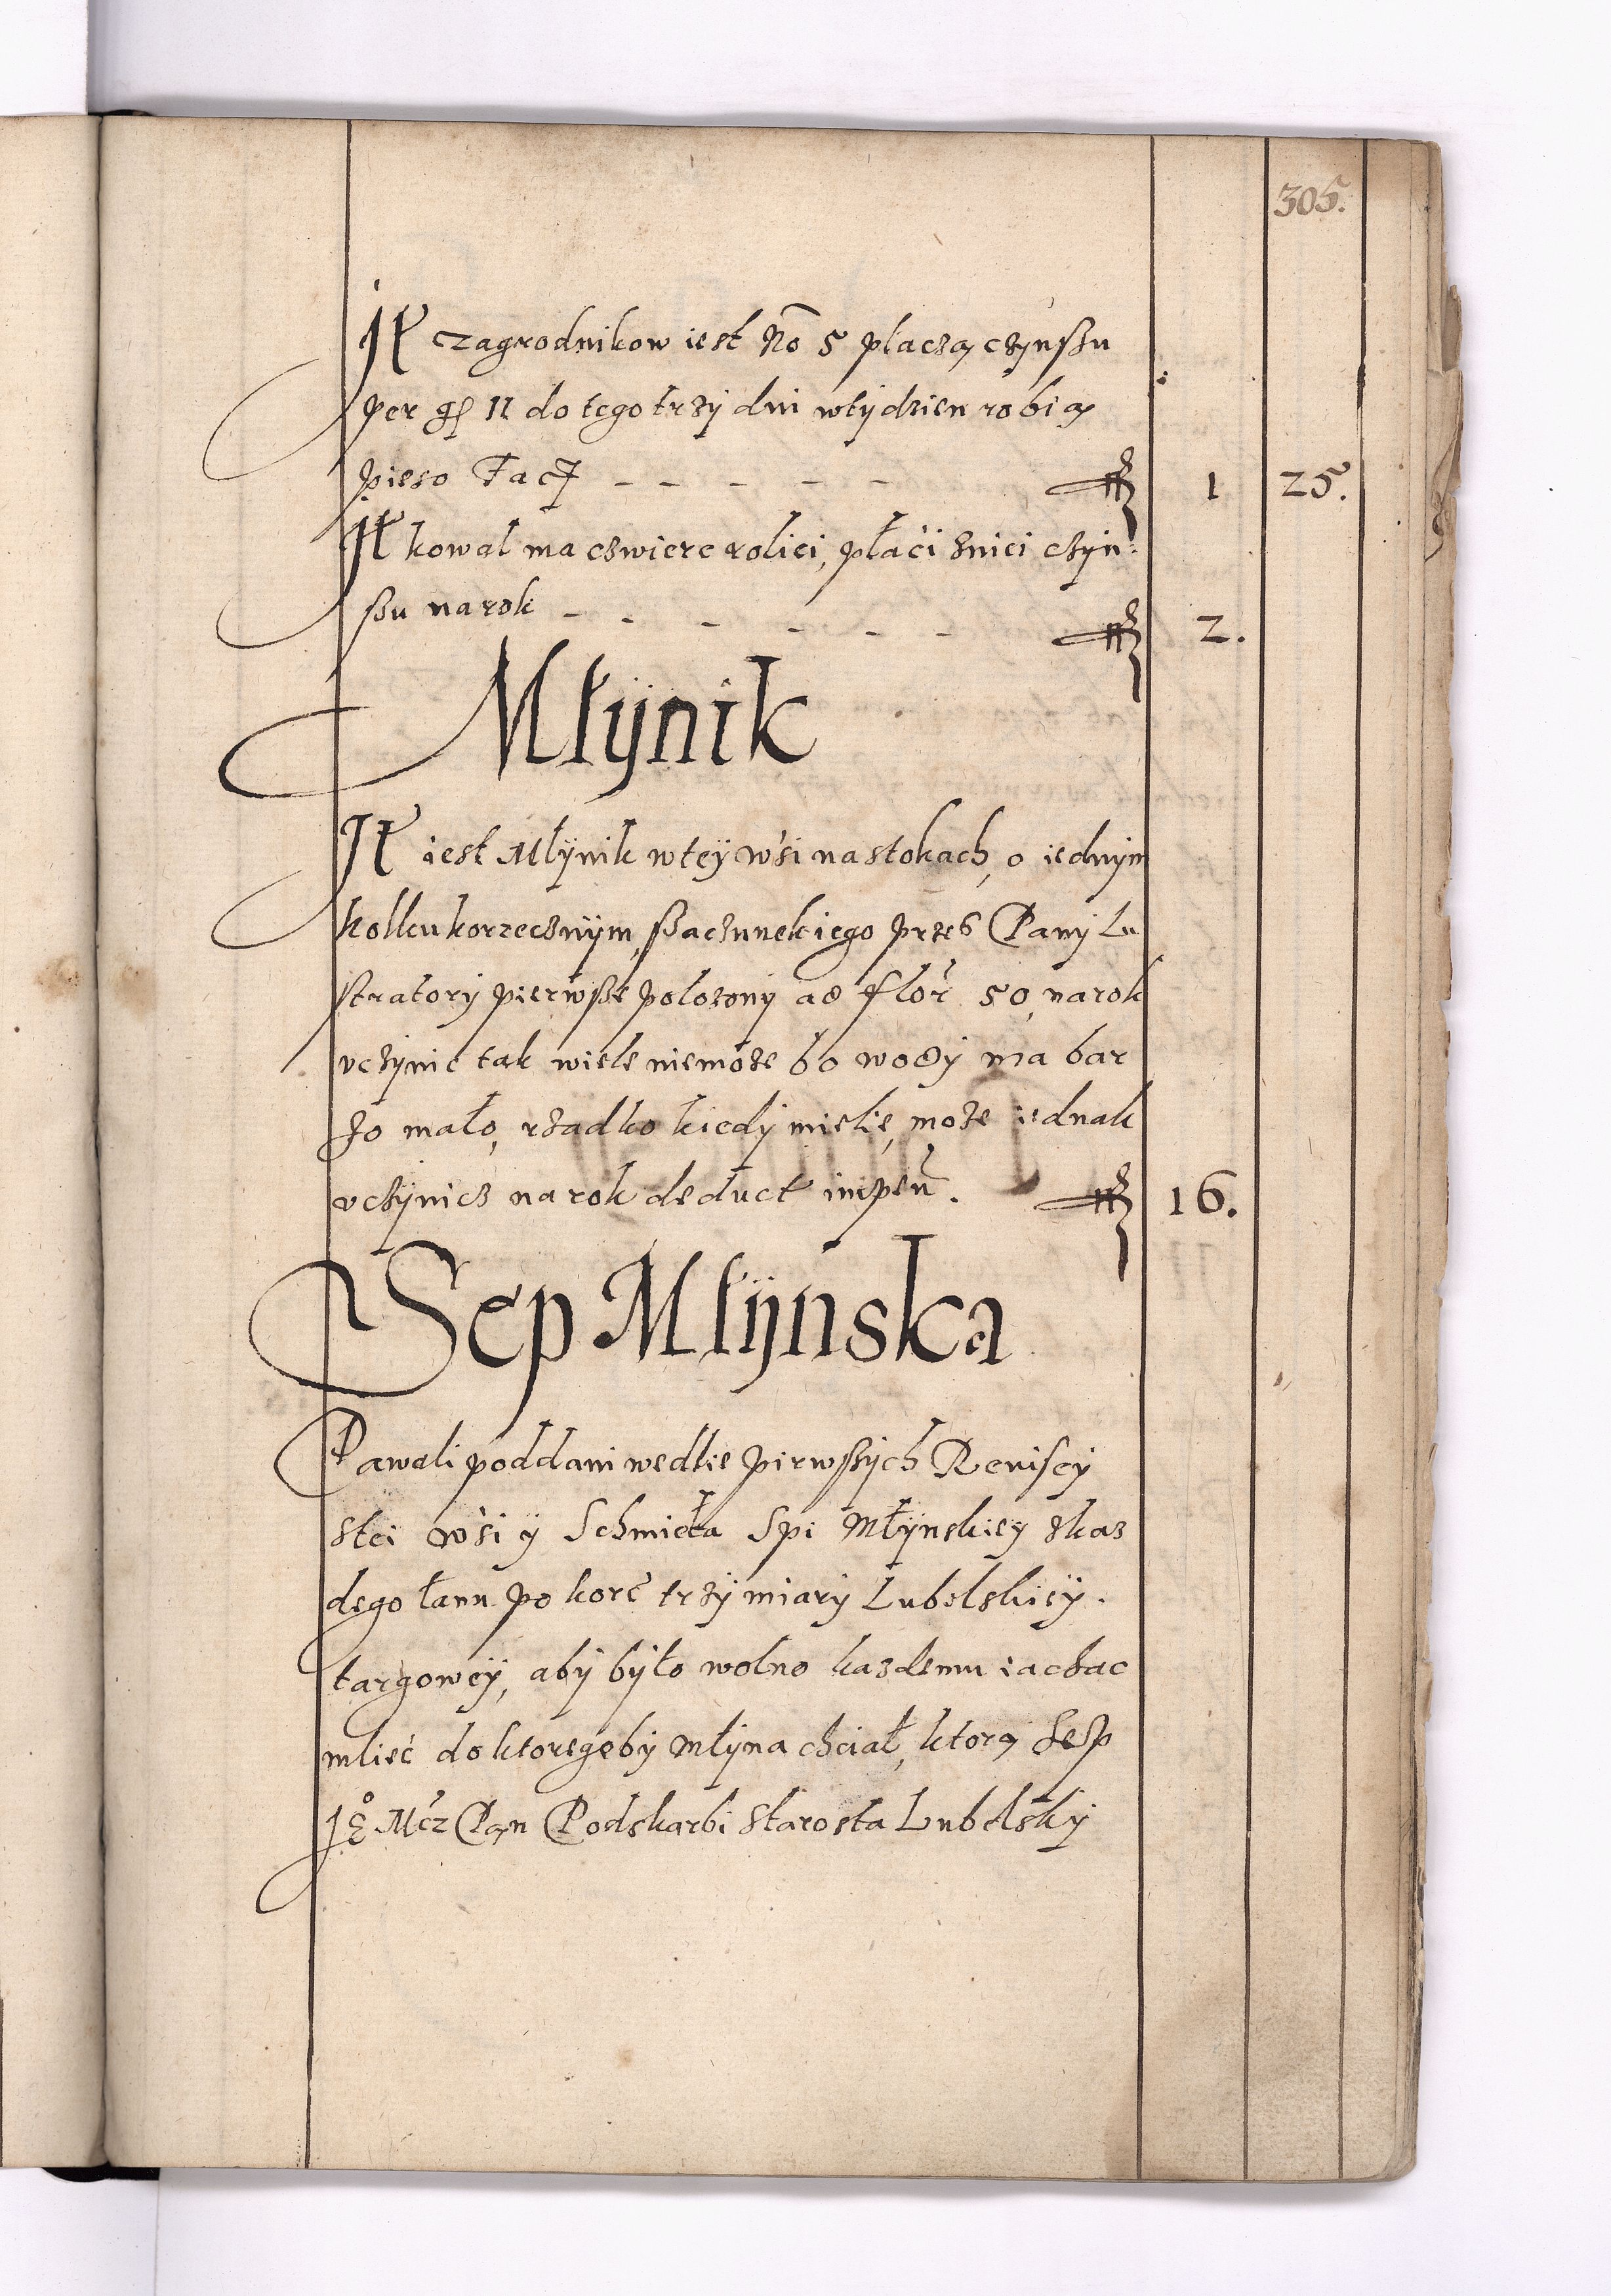 305.
It Czagrodnikow iest No 5 płaczą czynßu
per gr 11 do tego trzÿ dni wtÿdzien robią
pieso Fact - - - - - 1 25.
It kowal ma czwierc roliei, płaci zniei czÿn:
ßu na rok - - - - - - 2.
Młÿnik
It iest Młÿnik wteÿ wsi na stokach, o iednÿm
kołku korzecznÿm, ßaczunek iego przes Panÿ Lu
stratorÿ pierwße położonÿ ad flor 50, na rok
vczÿnic tak wiele niemoże bo wodÿ ma bar
zo mało, rzadko kiedÿ miele, może iednak
vczÿnicz na rok deduct impen. 16.
Sep Młÿnska
Dawali poddani wedłie pirwßÿch Reuiseÿ
stei wsi ÿ Schmieła Spi Młÿnskieÿ zkaz
dego łanu po kore trzÿ miarÿ Lubelskieÿ.
targoweÿ, abÿ bÿło wolno kazdemu iachac
mlieć do ktoregobÿ Młÿna chciał, ktorą Sesp
Je Mcz Pan Podskarbi Starosta Lubelskÿ